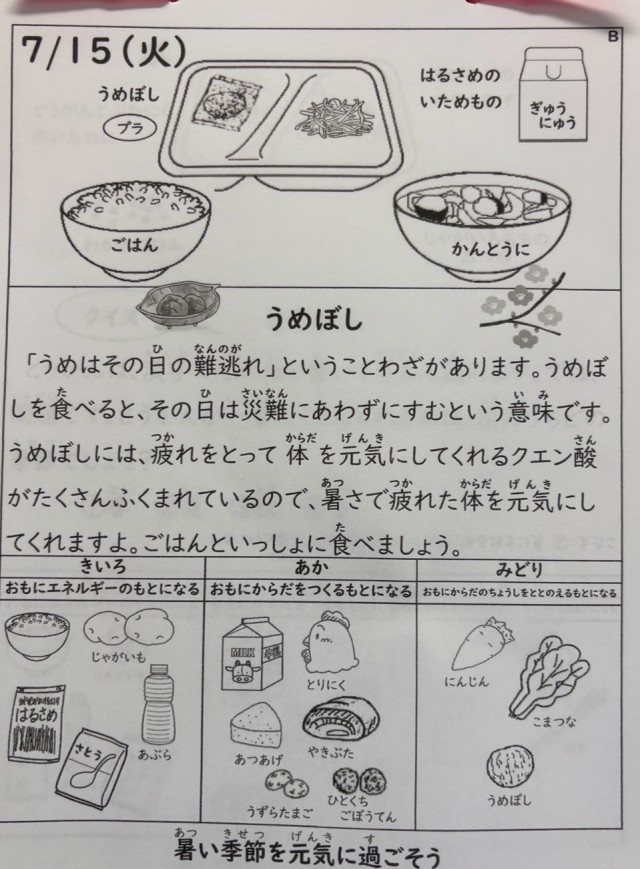 B
7/15(火)
うめぼし
プラ
はるさめの
いためもの
ぎゅう
にゅう
ごはん
かんとうに
うめぼし
「うめはその日の難逃れ」ということわざがあります。うめぼ
しを食べると、その日は災難にあわずにすむという意味です。
うめぼしには、疲れをとって体を元気にしてくれるクエン酸
がたくさんふくまれているので、暑さで疲れた体を元気にし
てくれますよ。ごはんといっしょに食べましょう。
きいろ
おもにエネルギーのもとになる
じゃがいも
はるさめ
さとう
あぶら
あか
おもにからだをつくるもとになる
MILK
とりにく
あつあげ
やきぶた
うずらたまご
ひとくち
ごぼうてん
みどり
おもにからだのちょうしをととのえるもとになる
にんじん
こまつな
うめぼし
暑い季節を元気に過ごそう